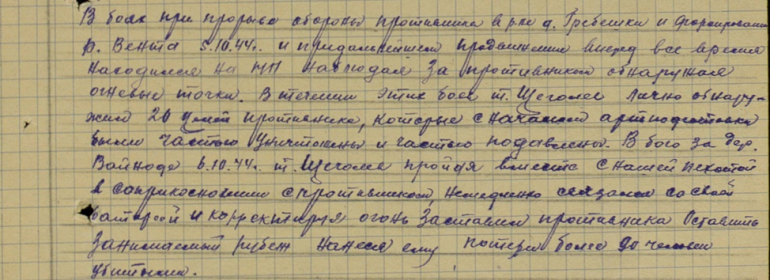 В боях при прорыве обороны противника в р-не д. Гребешки и форсировании
р. Вента 5.10.44 г. и придальнейшем продвижении вперед все время
находился на НП наблюдал за противником обнаружал
огневые точки. В течении этих боев т. Щеголев лично обнару-
жил 20 целей противника, которые с началом артподготовки
были частью уничтожены и частью подавлены. В бою за дер.
Вайноде 6.10.44 г. т. Щеголев пройдя вместе с нашей пехотой
в соприкосновении с противником, немедленно связался со своей
батареей и корректируя огонь заставил противника оставить
занимаемый рубеж нанеся ему потери более человек
убитыми.